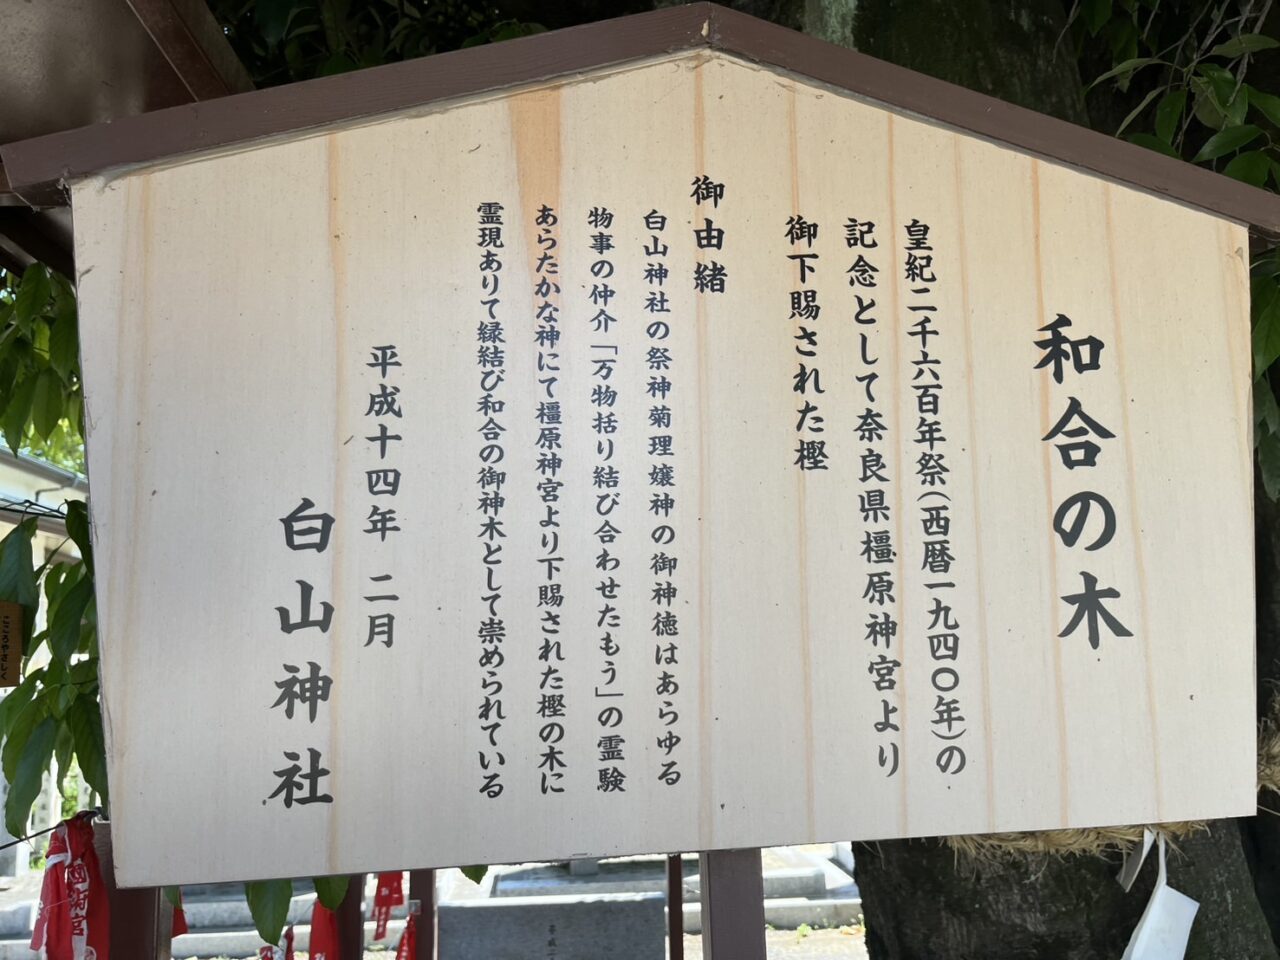 和合の木
皇紀二千六百年祭(西暦一九四〇年)の
記念として奈良県橿原神宮より
御下賜された樫
御由緒
白山神社の祭神菊理嬢神の御神徳はあらゆる
物事の仲介「万物括り結び合わせたもう」の霊験
あらたかな神にて橿原神宮より下賜された樫の木に
霊現ありて縁結び和合の御神木として崇められている
平成十四年 二月
白山神社
こころやさしく